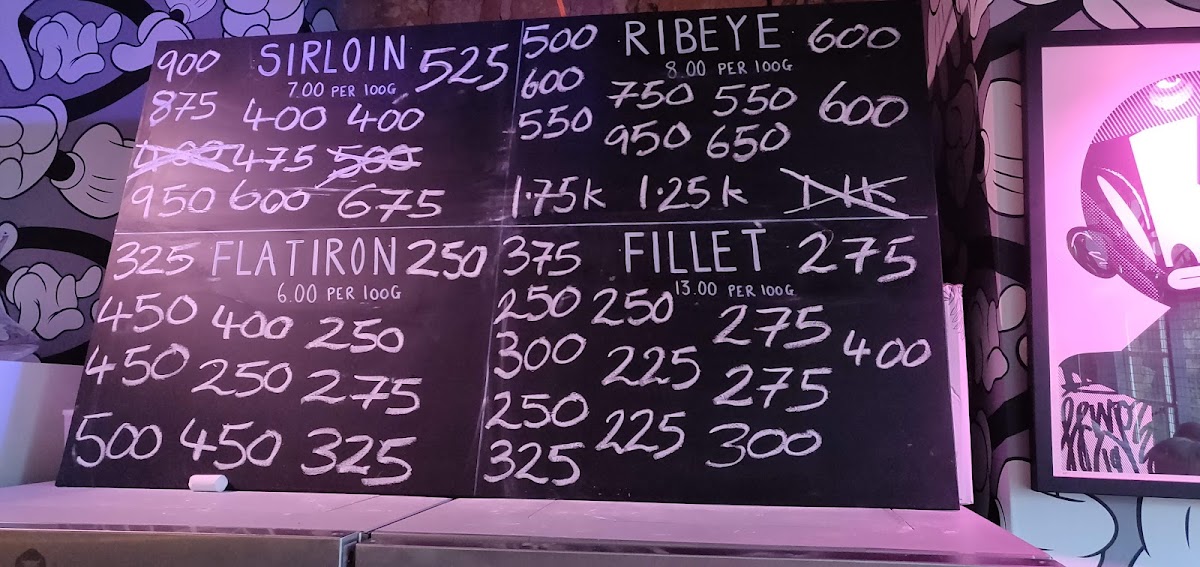 900 SIRLOIN 525
7.00 PER 100G
875 400 400
400 475 500
950 600 675
500 RIBEYE 600
8.00 PER 100G
600 750 550 600
550 950 650
1.75k 1.25k 1.1k
325 FLATIRON 250
6.00 PER 100G
450 400 250
450 250 275
500 450 325
375 FILLET 275
13.00 PER 100G
250 250 275
300 225 275 400
250 225 300
325